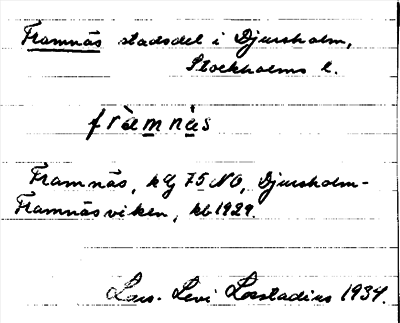 Framnäs stadsdel i Djursholm,
Stockholms l.
fràmnàs
Framnäs, kg 75 NO, Djursholm-
Framnäsviken, kb 1929.
Lars-Levi Læstadius 1934.